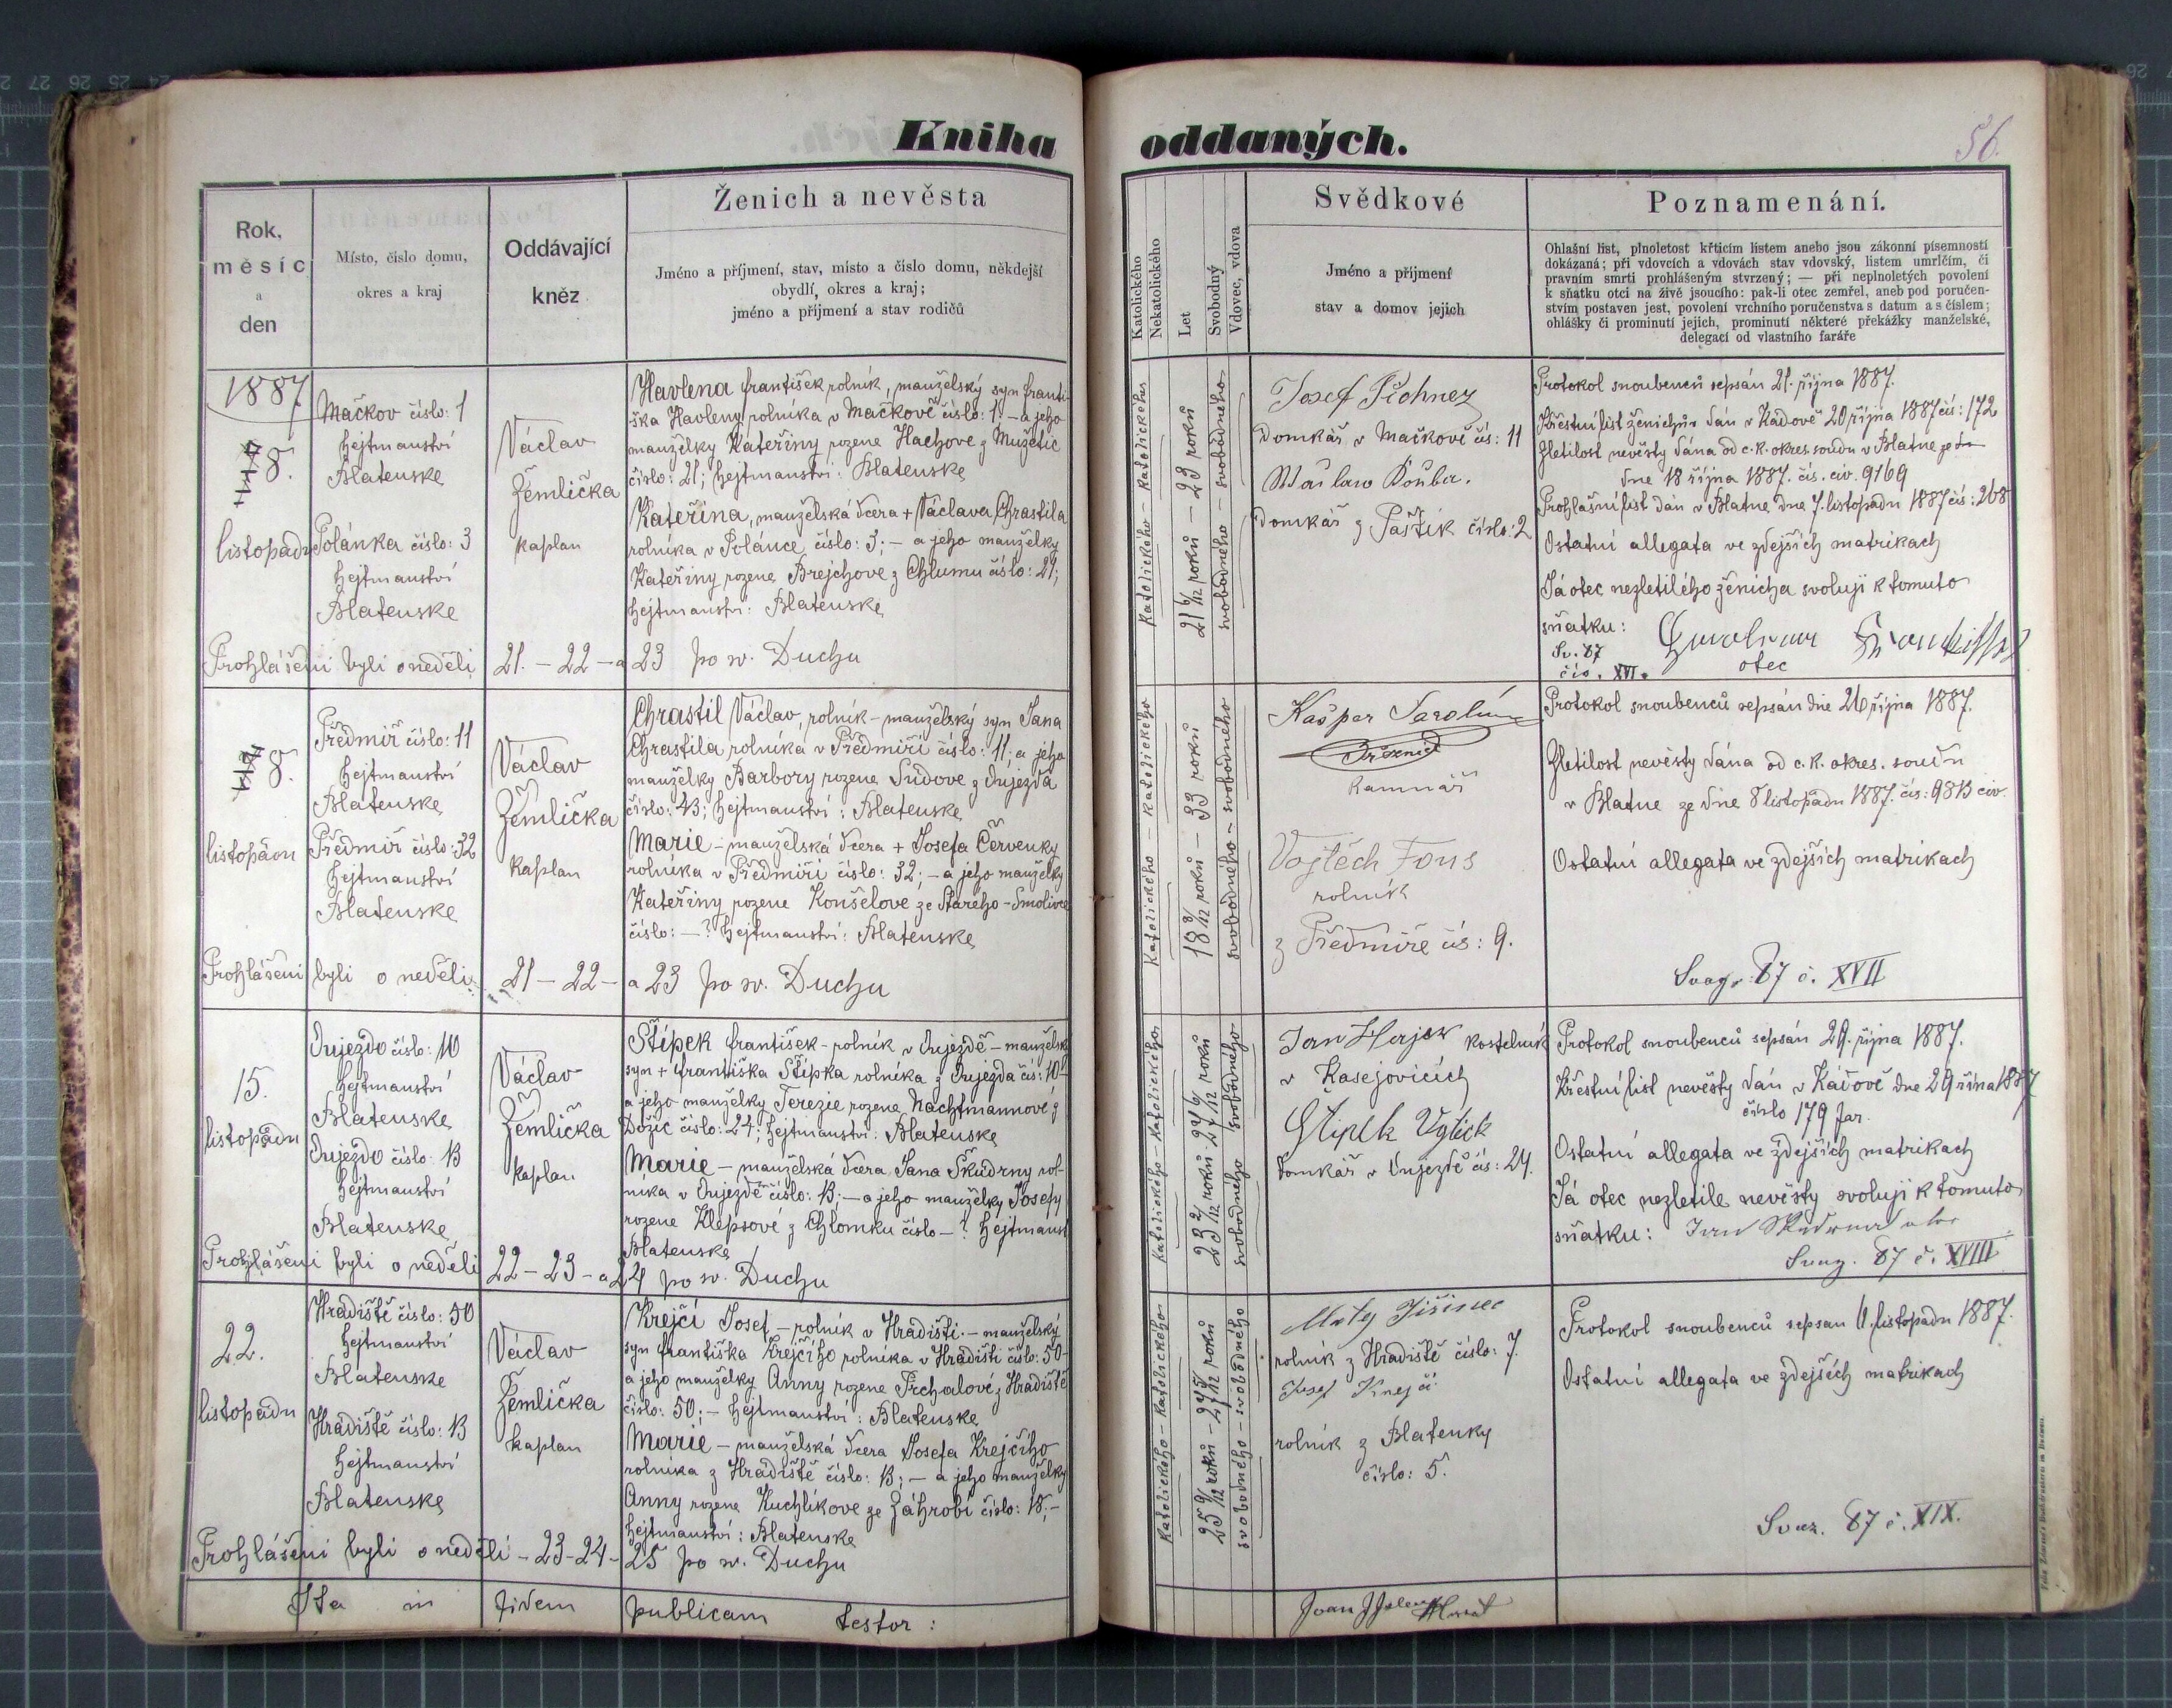 Kniha oddaných.
56.
Rok, měsíc a den
Místo, číslo domu, okres a kraj
Oddávající kněz
Ženich a nevěsta
Jméno a příjmení, stav, místo a číslo domu, někdejší
obydlí, okres a kraj;
jméno a příjmení a stav rodičů
Katolického
Nekatolického
Let
Svobodný
Vdovec, vdova
Svědkové
Jméno a příjmení
stav a domov jejich
Poznamenání.
Ohlašní list, plnoletost křticím listem anebo jsou zákonní písemností
dokázaná; při vdovcích a vdovách stav vdovský, listem umrlčím, či
pravním smrti prohlášeným stvrzený; — při neplnoletých povolení
k sňatku otci na živě jsoucího: pak-li otec zemřel, aneb pod poručen-
stvím postaven jest, povolení vrchního poručenstva s datum a s číslem;
ohlášky či prominutí jejich, prominutí některé překážky manželské,
delegací od vlastního faráře
1887
8.
listopadu
Mačkov číslo: 1
Hejtmanství
Blatenské
Polánka číslo: 3
Hejtmanství
Blatenske
Václav
Žemlička
kaplan
Havlena František rolník, manželský syn Franti-
ška Havleny rolníka v Mačkově číslo: 1. – a jeho
manželky Kateřiny rozene Hachove z Mužetic
číslo: 21; Hejtmanství: Blatenske
Kateřina, manželská dcera + Václava Chrastila
rolníka v Polánce číslo: 3; – a jeho manželky
Kateřiny rozene Brejchove z Chlumu číslo: 29;
Hejtmanství: Blatenske
Prohlášeni byli o neděli 21. – 22 – a 23 po sv. Duchu
Katolického – Katolického
21 6/12 roků – 23 roků
svobodného – svobodného
Josef
domkář v Mačkově čís: 11
domkář z Paštik číslo: 2
Protokol snoubenců sepsán 21. října 1887.
Křestní list ženichův dán v Kadově 20 října 1887 čís: 172
Zletilost nevěsty dána od c. k. okres. soudu v Blatne
dne 18 října 1887. čís. civ. 9169
Prohlašní list dán v Blatne dne 7. listopadu 1887 čís: 268
Ostatní allegata ve zdejších matrikach
Já otec nezletilého ženicha svoluji k tomuto
sňatku:
otec
Sv. 87
čís. XVI.
8.
listopadu
Předmíř číslo: 11
Hejtmanství
Blatenske
Předmíř číslo: 32
Hejtmanství
Blatenske
Václav
Žemlička
kaplan
Chrastil Václav, rolník – manželský syn Jana
Chrastila rolníka v Předmíři číslo: 11; a jeho
manželky Barbory rozene Sudove z Oujezda
číslo: 43; Hejtmanství: Blatenske
Marie – manželská dcera + Josefa Červenky
rolníka v Předmíři číslo: 32; – a jeho manželky
Kateřiny rozene Koušelove ze Stareho-Smolivce
číslo: – ? Hejtmanství: Blatenske
Prohlášeni byli o neděli 21 – 22 – a 23 po sv. Duchu
Katolického – Katolického
18 8/12 roků – 33 roků
svobodného – svobodného
Kašpar
kamnář
Vojtěch Fous
rolník
z Předmíře čís: 9.
Protokol snoubenců sepsán dne 26 října 1887.
Zletilost nevěsty dána od c. k. okres. soudu
v Blatne ze dne 8 listopadu 1887. čís: 9813 civ.
Ostatní allegata ve zdejších matrikach
87 č. XVII
15.
listopadu
Oujezdo číslo: 10
Hejtmanství
Blatenske
Oujezdo číslo: 13
Hejtmanství
Blatenske
Václav
Žemlička
kaplan
Štípek František – rolník v Oujezdě – manželsk.
syn + Františka Štípka rolníka z Oujezda čís: 10 –
a jeho manželky Terezie rozene Nachtmannové z
Dožic číslo: 24; Hejtmanství: Blatenske
Marie – manželská dcera Jana Škudrny rol-
níka v Oujezdě číslo: 13; – a jeho manželky Josefy
rozene Klepsové z Chlomku číslo – ? Hejtmanst.
Blatenske
Prohlášeni byli o neděli 22 – 23 – a 24 po sv. Duchu
Katolického – Katolického
svobodného svobodného
kostelník
v Kasejovicích
domkář v Oujezdě čís: 24.
Protokol snoubenců sepsán 29. října 1887.
Křestní list nevěsty dán v Kádově dne 29 října 1887
číslo 179 far.
Ostatní allegata ve zdejších matrikach
Já otec nezletile nevěsty svoluji k tomuto
sňatku:
87 č. XVIII
22.
listopadu
Hradiště číslo: 50
Hejtmanství
Blatenske
Hradiště číslo: 13
Hejtmanství
Blatenske
Václav
Žemlička
kaplan
Krejčí Josef – rolník v Hradišti – manželský
syn Františka Krejčího rolníka v Hradišti číslo: 50 –
a jeho manželky Anny rozene Prchalové z Hradiště
číslo: 50; – Hejtmanství: Blatenske
Marie – manželská dcera Josefa Krejčího
rolníka z Hradiště číslo: 13; – a jeho manželky
Anny rozene Kuchlíkove ze Záhrobí číslo: 18; –
Hejtmanství: Blatenske
Prohlášeni byli o neděli – 23 – 24 – 25 po sv. Duchu
Katolického – Katolického
svobodného – svobodného
rolník z Hradiště číslo: 7.
Josef Krejčí
rolník z Blatenky
číslo: 5.
Protokol snoubenců sepsan listopadu 1887.
Ostatní allegata ve zdejších matrikach
87 č. XIX.
Ita in fidem publicam testor: